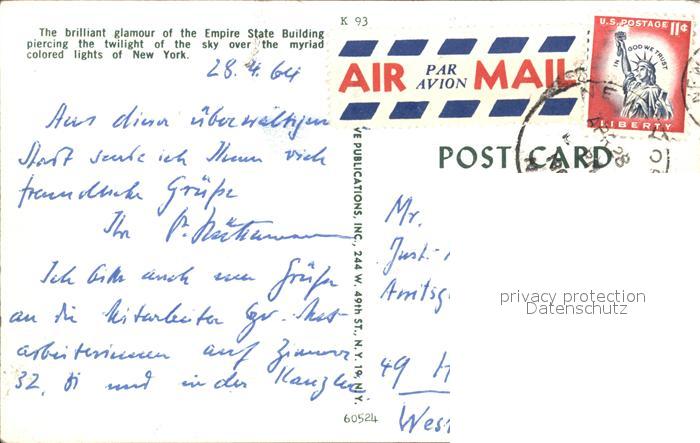 The brilliant glamour of the Empire State Building
piercing the twilight of the sky over the myriad
colored lights of New York.
K 93
28.4.64
AIR PAR AVION MAIL
U.S. POSTAGE 11¢
IN GOD WE TRUST
LIBERTY
POST CARD
Aus dieser überwältigen
Stadt sende ich Ihnen viele
freundliche Grüße
Ihr P.
Ich bitte auch um Grüße
an die Mitarbeiter bzw. Mit-
arbeiterinnen auf Zimmer
32, 81 und in der Kanzlei.
VE PUBLICATIONS, INC., 244 W. 49th ST., N. Y. 19, N. Y.
60524
Mr.
Just.-
Amtsg
49 H
West
privacy protection
Datenschutz